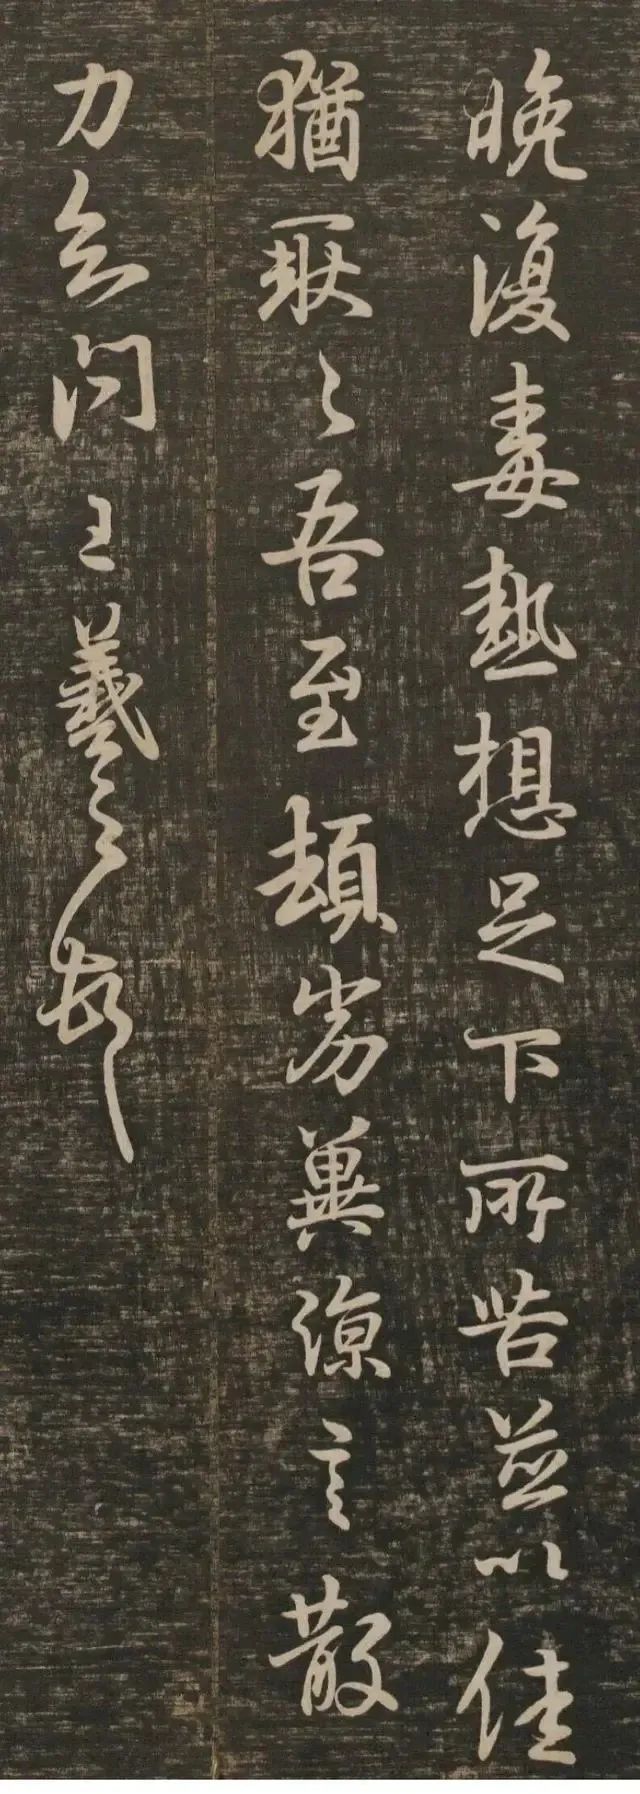 晚復毒熱想足下所苦並以佳
猶耿々吾至頓劣冀涼言散
力知問王羲之頓首